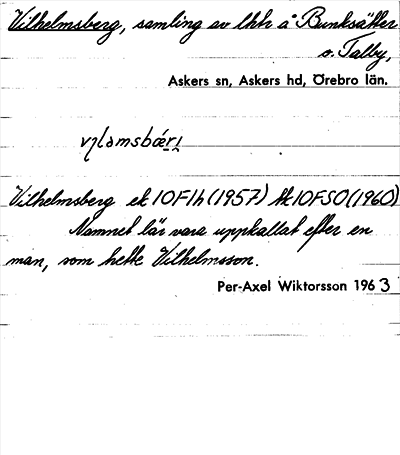 Vilhelmsberg, samling av lhh å Bunksätter
s. Talby,
Askers sn, Askers hd, Örebro län.
Vilhelmsberg ek 10F1h (1957) tk 10F SO (1960)
Namnet lär vara uppkallat efter en
man, som hette Vilhelmsson.
Per-Axel Wiktorsson 1963